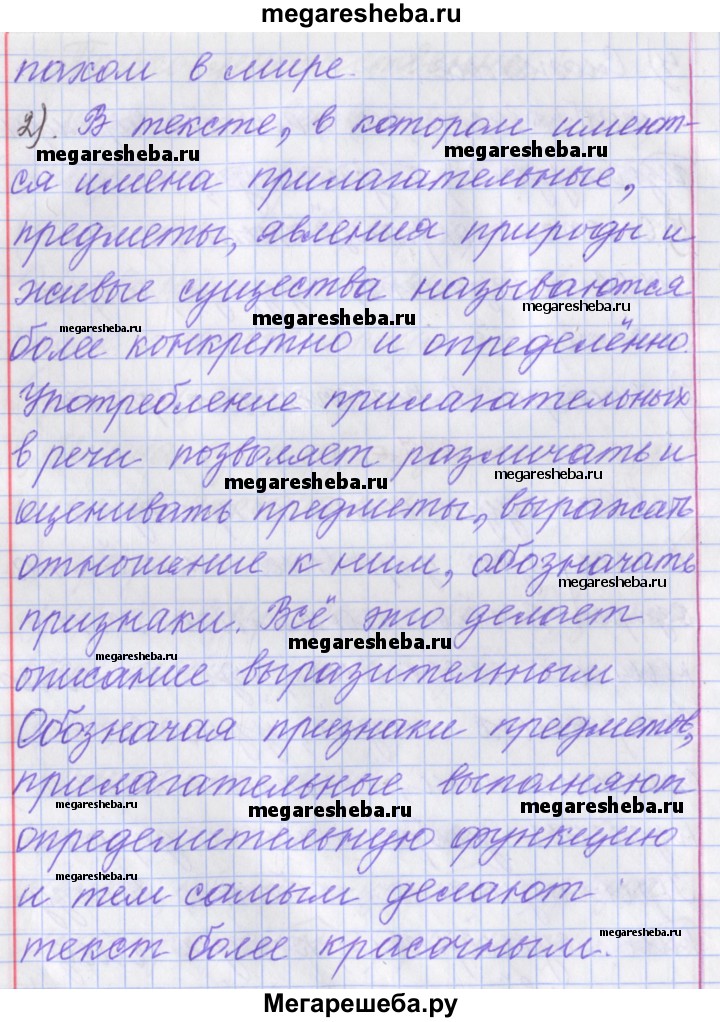 megaresheba.ru
пахом в мире.
2). В тексте, в котором имеют-
megaresheba.ru megaresheba.ru
ся имена прилагательные,
предметы, явления природы и
живые существа называются
megaresheba.ru megaresheba.ru megaresheba.ru
более конкретно и определённо.
Употребление прилагательных
в речи позволяет различать и
megaresheba.ru megaresheba.ru
оценивать предметы, выражать
отношение к ним, обозначать
megaresheba.ru
признаки. Всё это делает
megaresheba.ru megaresheba.ru
описание выразительным
Обозначая признаки предметов,
прилагательные выполняют
megaresheba.ru megaresheba.ru megaresheba.ru
определительную функцию
megaresheba.ru
и тем самым делают
megaresheba.ru
текст более красочным.
Мегарешеба.ру